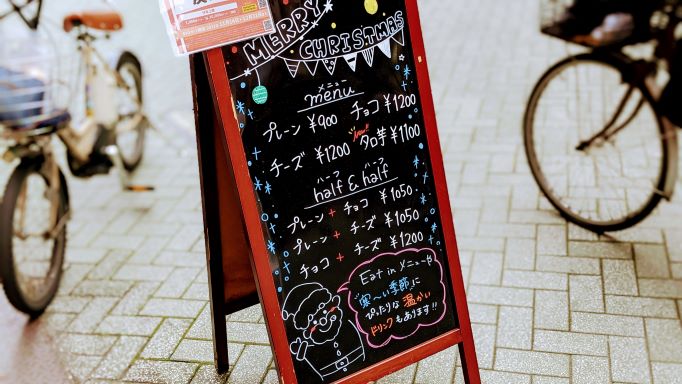 MERRY
CHRISTMAS
メニュー
menu
プレーン ¥900 チョコ ¥1200
チーズ ¥1200 new! タロ芋 ¥1100
ハーフ ハーフ
half & half
プレーン + チョコ ¥1050
プレーン + チーズ ¥1050
チョコ + チーズ ¥1200
Eat in メニューや
"寒〜い季節"に
ぴったりな 温かい
ドリンクもあります!!